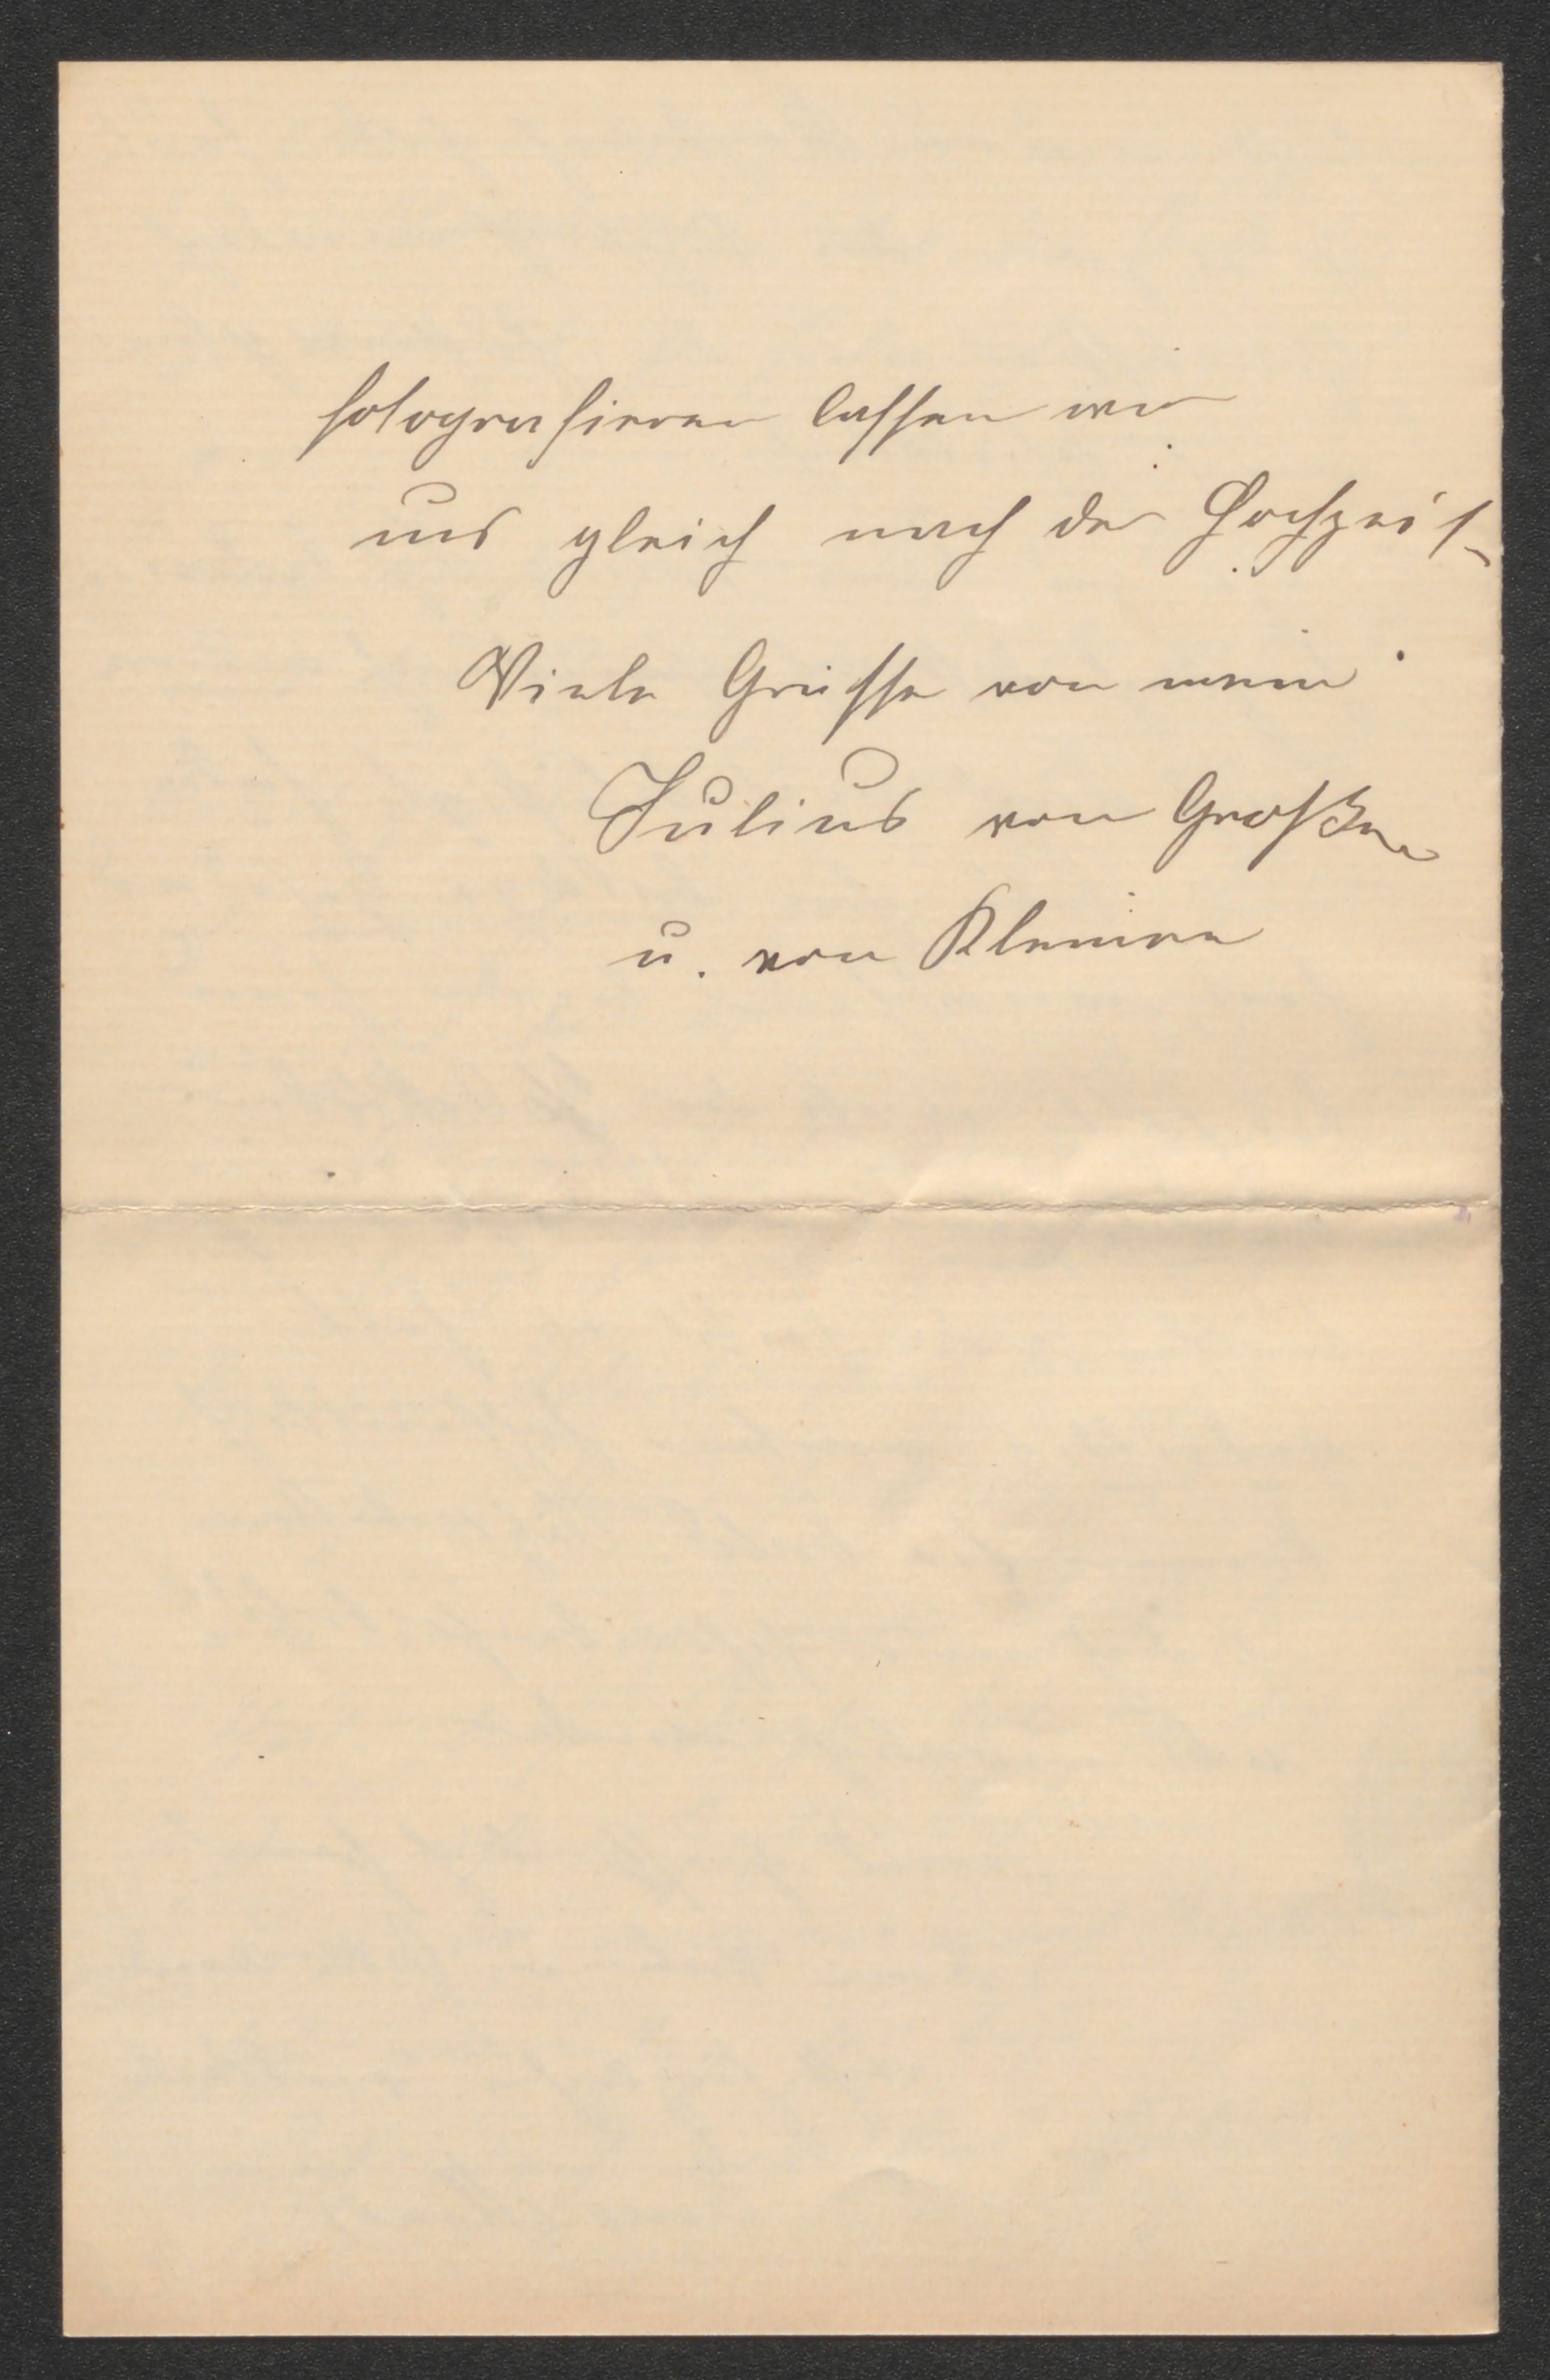 fotografieren lassen wir
uns gleich nach der Hochzeit
Viele Grüsse von mein
Julius von Großen
u. von Kleinen